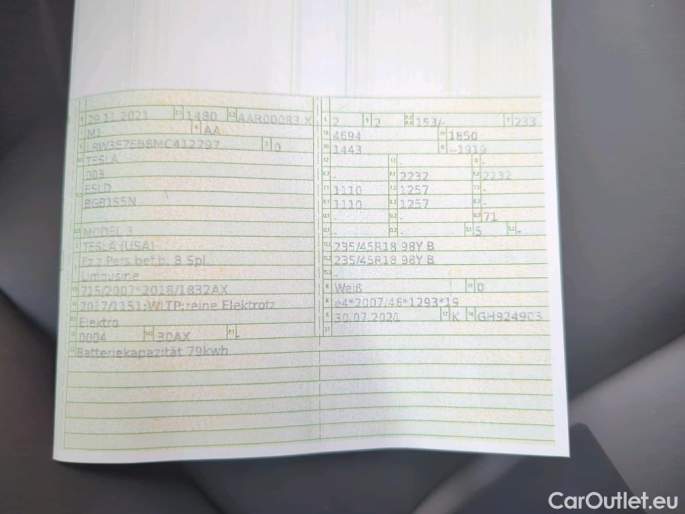 29.11.2021 1480 AAR00083 X
M1 AA
0
TESLA
003
E5LD
MODEL 3
TESLA (USA)
Fz.z.Pers.bef.b. 8 Spl.
Limousine
715/2007*2018/1832AX
2017/1151;WLTP:reine Elektrofz
Elektro
0004 30AX -
Batteriekapazität 79kwh
2 2 153/- 233
4694 1850
1443 -1919
- - -
- 2232 2232
1110 1257 -
1110 1257 -
- - 71
5 -
235/45R18 98Y B
235/45R18 98Y B
-
Weiß 0
e4*2007/46*1293*19
K GH924903
CarOutlet.eu